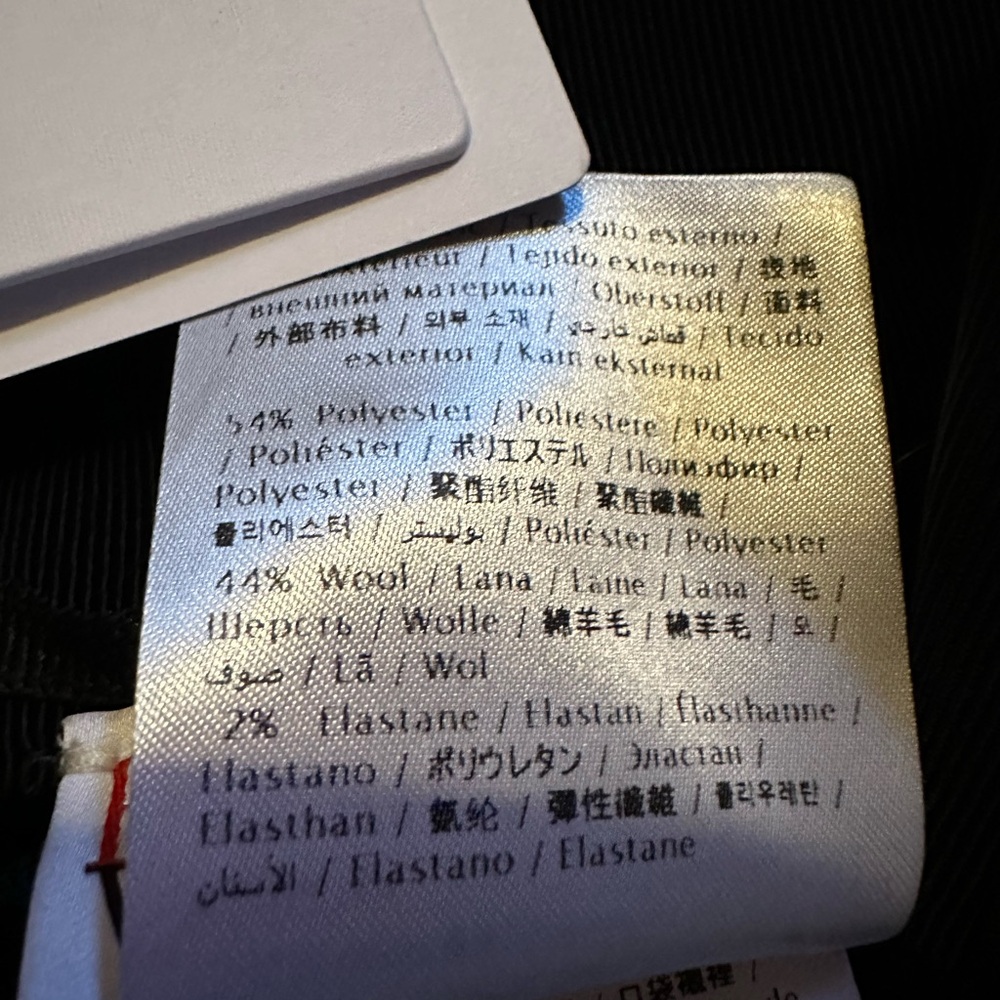 / Tessuto esterno /
extérieur / Tejido exterior / 表地
/ внешний материал / Oberstoff / 面料
/ 外部布料 / 외부 소재 / قماش خارجي / Tecido
exterior / Kain eksternal
54% Polyester / Poliestere / Polyester
/ Poliéster / ポリエステル / Полиэфир /
Polyester / 聚酯纤维 / 聚酯纖維 /
폴리에스터 / بوليستر / Poliéster / Polyester
44% Wool / Lana / Laine / Lana / 毛 /
Шерсть / Wolle / 綿羊毛 / 綿羊毛 / 모 /
صوف / Lã / Wol
2% Elastane / Elastan / Élasthanne /
Elastano / ポリウレタン / Эластан /
Elasthan / 氨纶 / 彈性纖維 / 폴리우레탄 /
الأستان / Elastano / Elastane
口袋襯裡 /